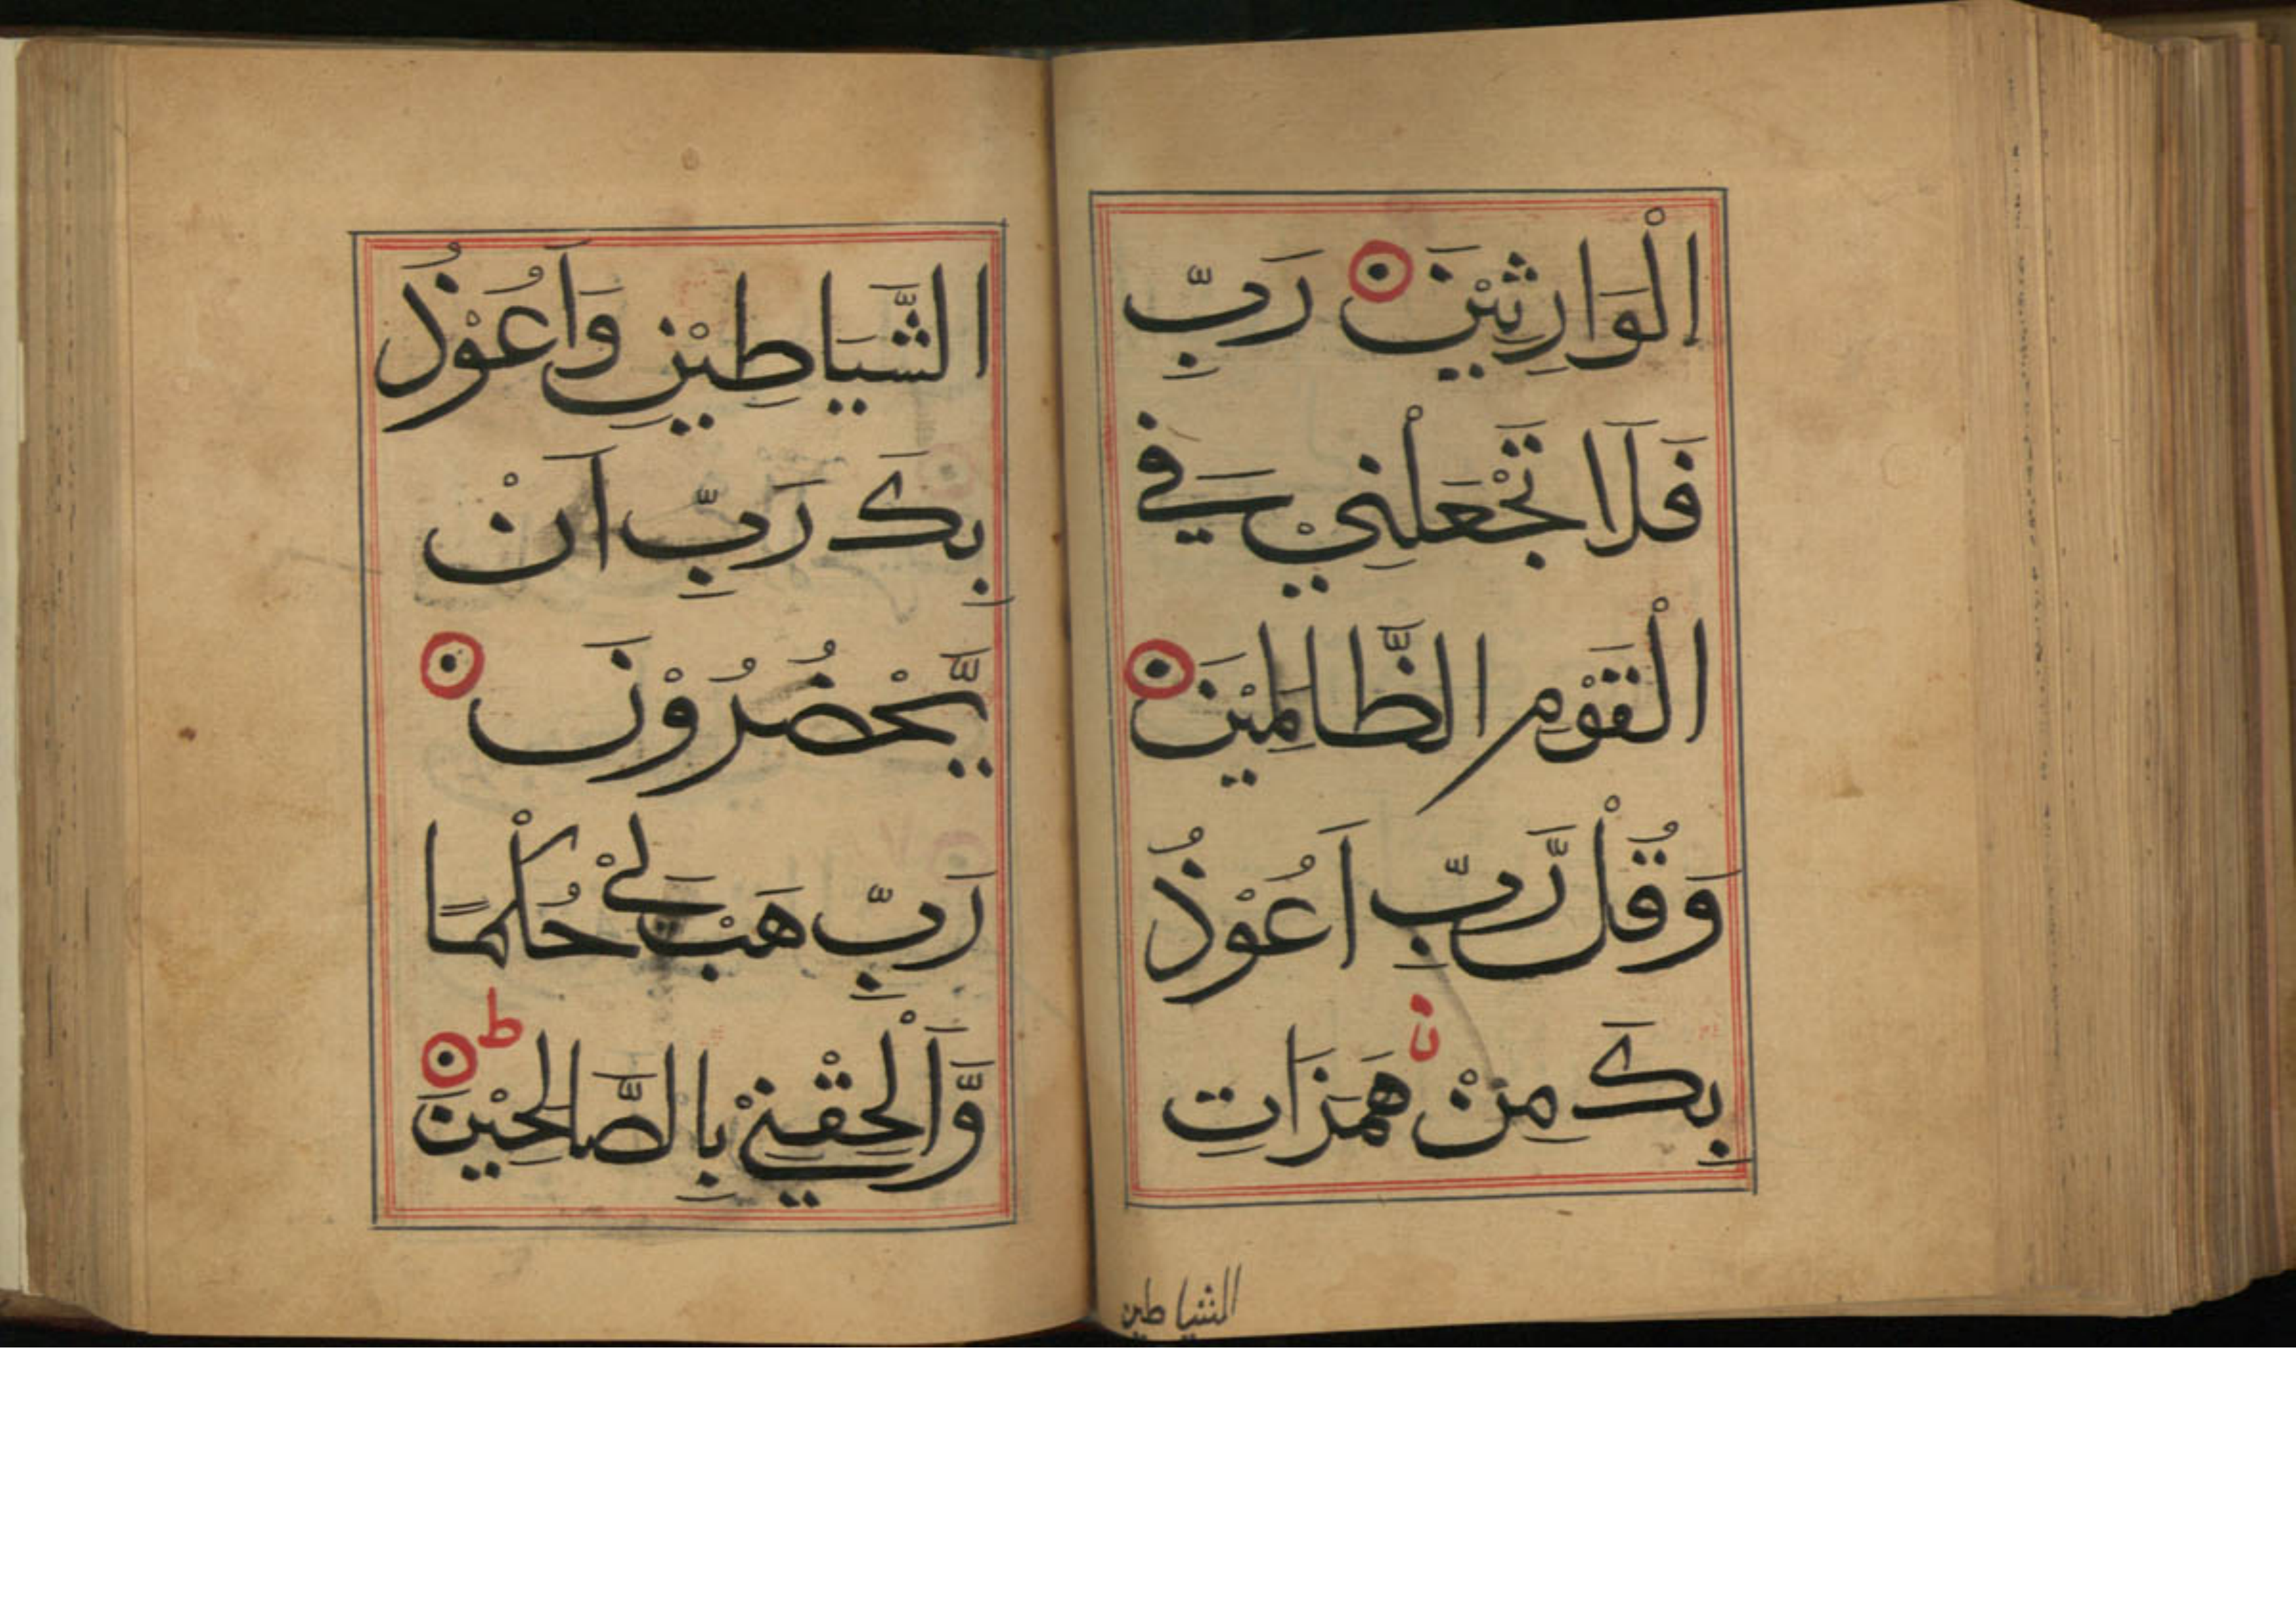 الْوَارِثِيْنَ رَبِّ
فَلَا تَجْعَلْنِيْ فِي
الْقَوْمِ الظَّالِمِيْنَ
وَقُلْ رَّبِّ اَعُوْذُ
بِكَ مِنْ هَمَزَاتِ
الشياطين
الشَّيَاطِيْنِ وَاَعُوْذُ
بِكَ رَبِّ اَنْ
يَّحْضُرُوْنَ
رَبِّ هَبْ لِيْ حُكْمًا
وَّاَلْحِقْنِيْ بِالصَّالِحِيْنَ ط